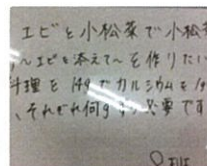 エビと小松菜で小松
〜エビを添えて〜を作りたい
料理を149でカルシウムを
、それぞれ何g 必要です